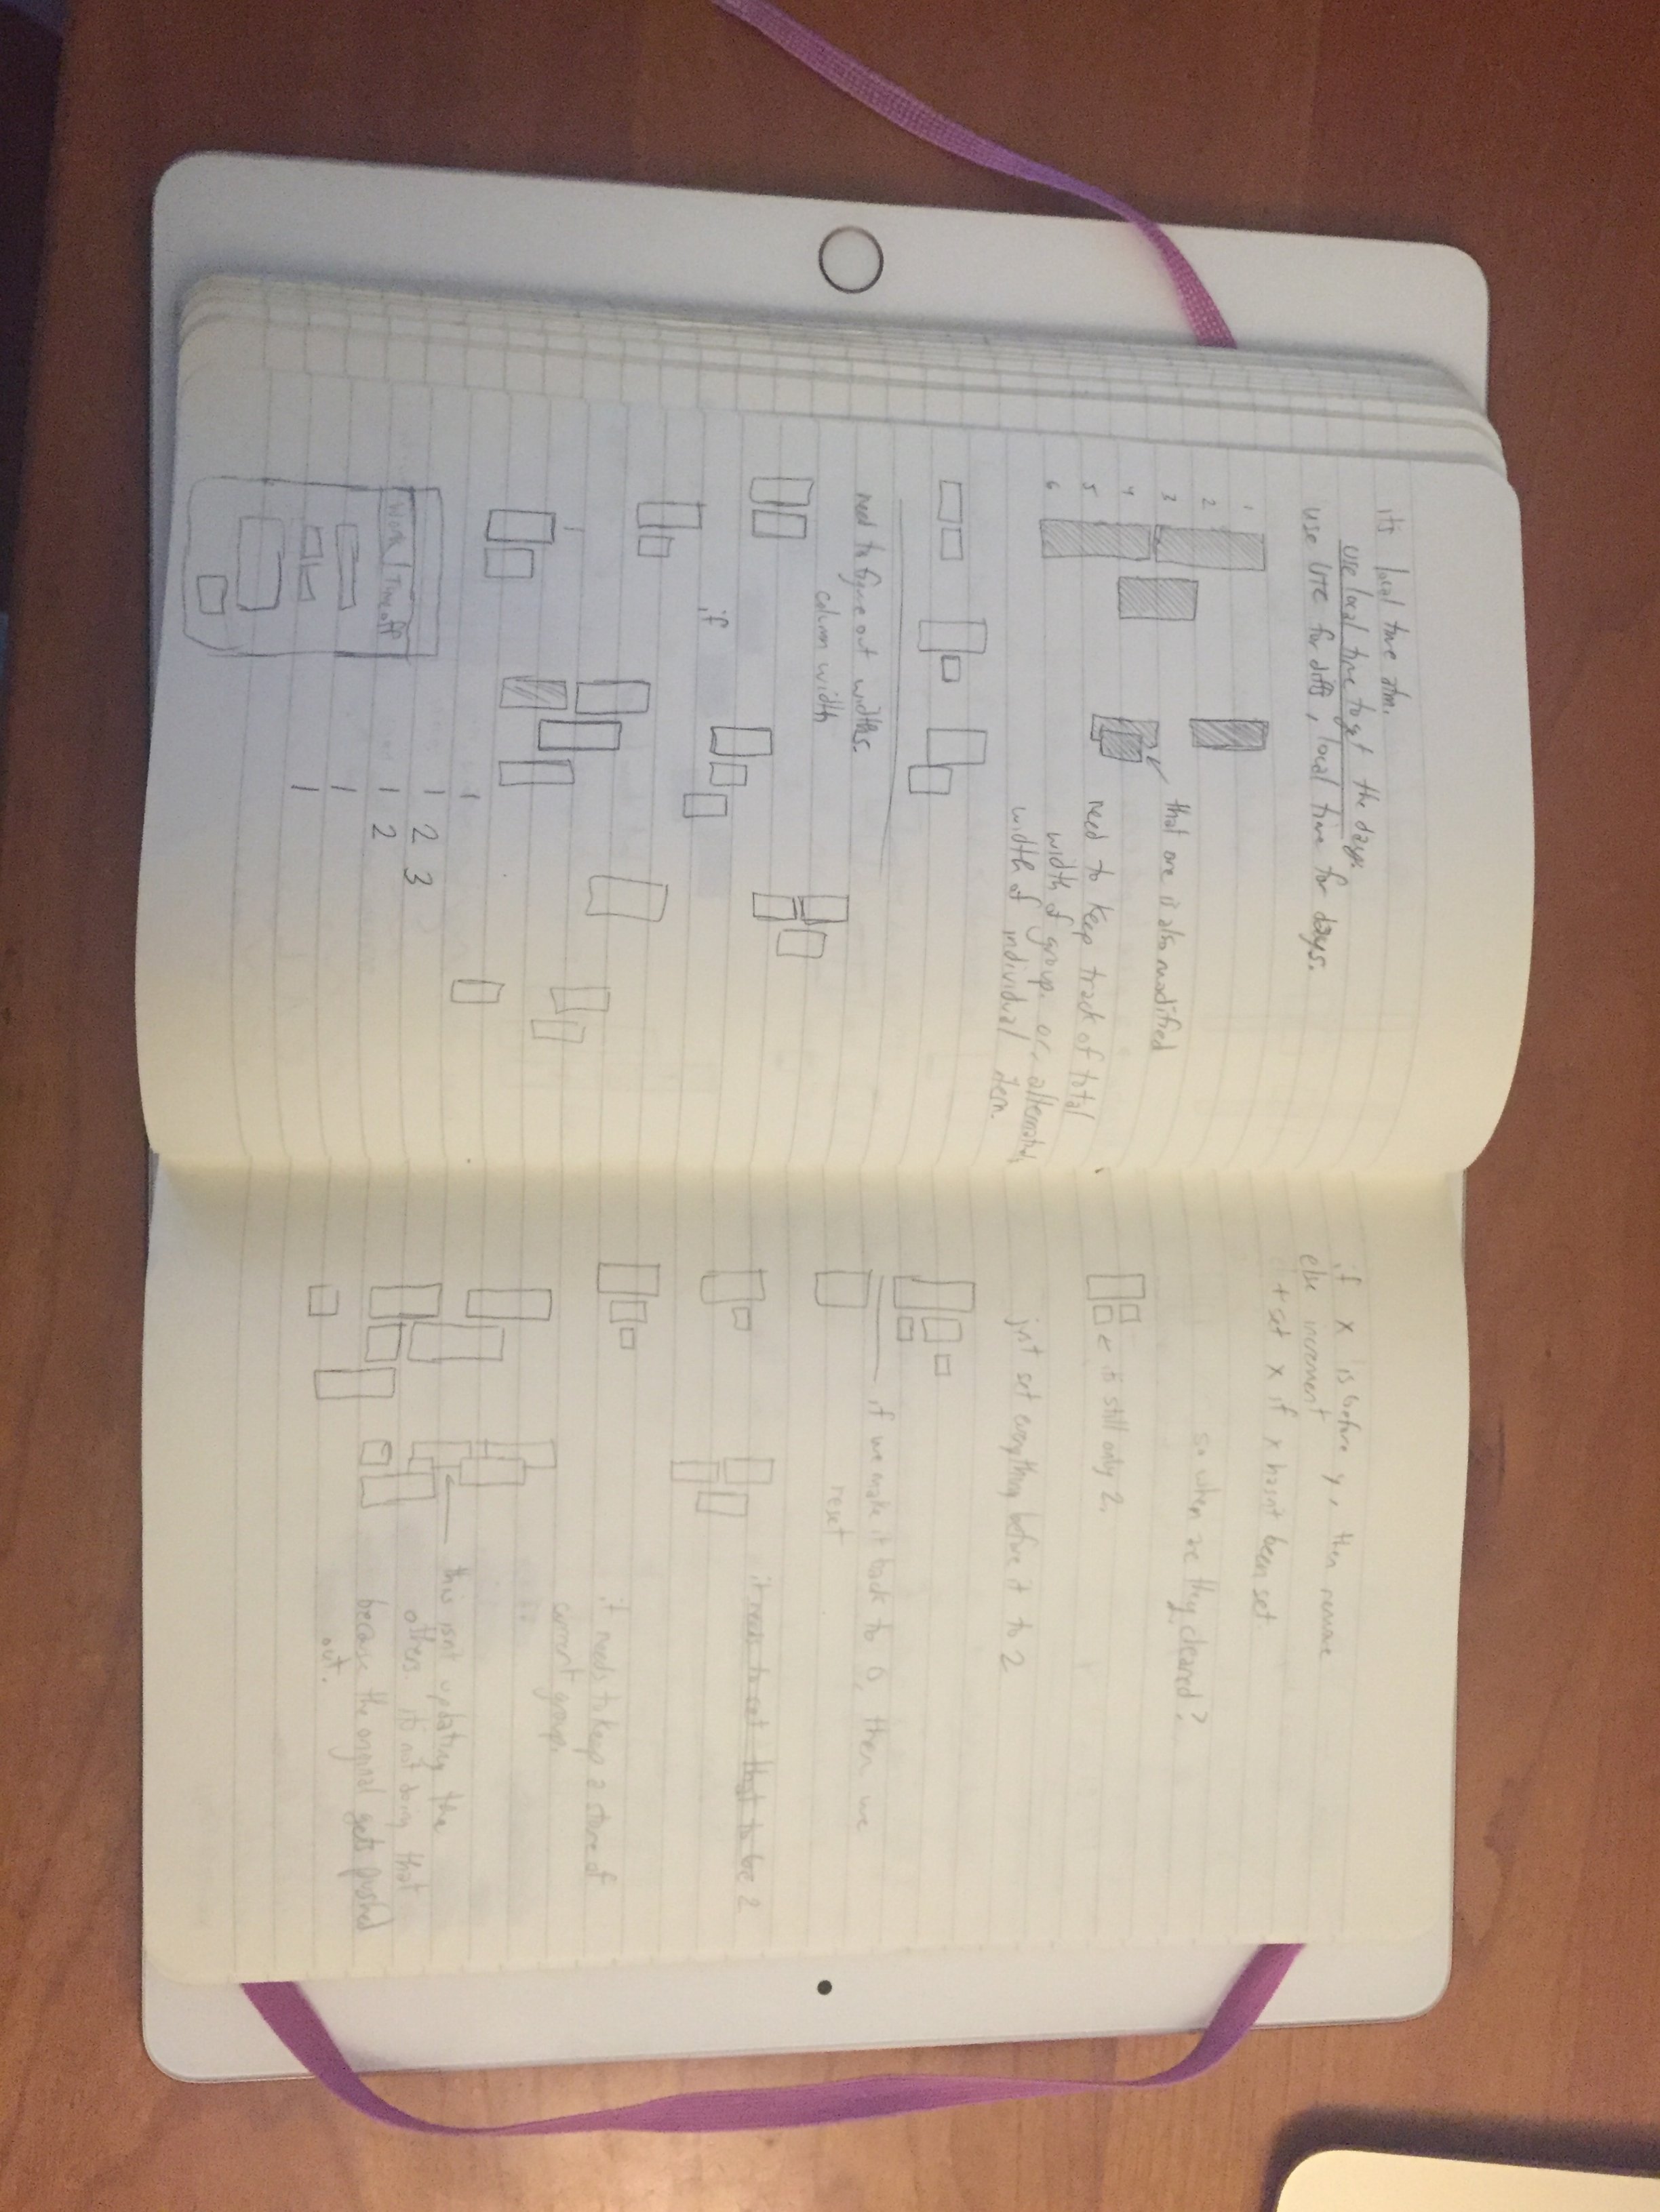 it's local time atm.
use local time to get the days.
use UTC for diffs, local time for days.
1
2
3
4
5
6
that one is also modified
need to keep track of total
width of group. or alternatively
width of individual item.
need to figure out widths.
column width
if
1
1 2 3
1 2
1
1
Work / Time off
if x is before y, then remove
else increment
+ set x if x hasn't been set.
so when are they cleared?
is still only 2.
just set everything before it to 2
if we make it back to 0, then we
reset
it needs to set that to be 2
it needs to keep a store of
current group.
this isn't updating the
others. it's not doing that
because the original gets pushed
out.